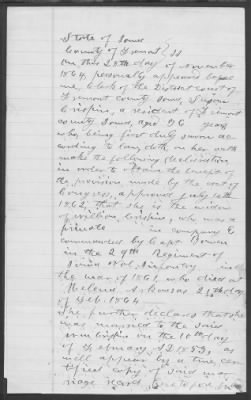 State of Iowa
County of Fremont } SS
On this 28th day of November
1864, personally appeared before
me, Clerk of the District court of
Fremont County Iowa, Susan
Crispin, a resident of Fremont
county Iowa, aged 26 years
who, being first duly sworn ac
cording to law, doth on her oath
make the following declaration
in order to obtain the benefit of
the provision made by the act of
Congress, approved July 14th
1862, that she is the widow
of William Crispin, who was a
private in company E
commanded by Capt. Bowen
in the 29th Regiment of
Iowa Vol. Infantry in
the war of 1861 who died at
Helena Arkansas day
of Feb. 1864
She further declares that she
was married to the said
Crispin on the 10th day
of February, AD 1853, as
will appear by a true cer
tified copy of said mar
riage record,